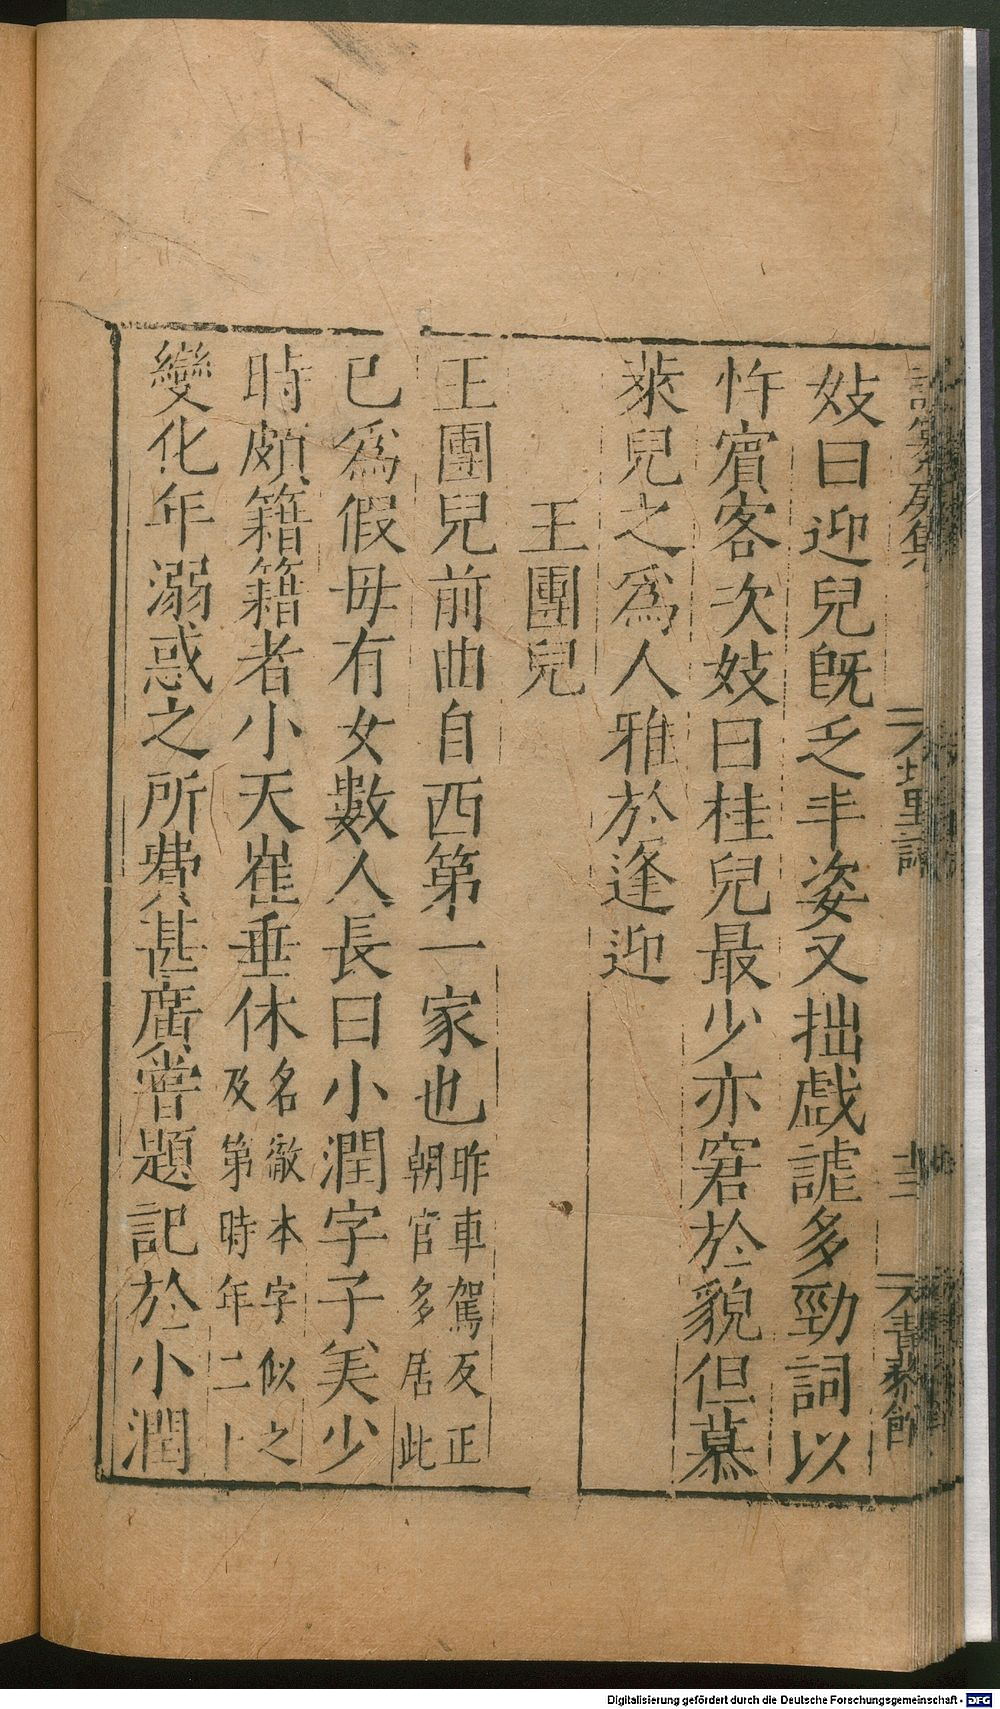 妓曰迎兒既乏丰姿又拙戯謔多勁詞以
忤賓客次妓曰桂兒最少亦窘於貌但慕
萊兒之爲人雅於逢迎
王團兒
王團兒前曲自西第一家也昨車駕反正朝官多居此
已爲假母有女數人長曰小潤字子美少
時頗籍籍者小天崔垂休名徹本字似之及第時年二十
變化年溺惑之所費甚廣嘗題記於小潤
北里誌
十三
青藜館
Digitalisierung gefördert durch die Deutsche Forschungsgemeinschaft - DFG